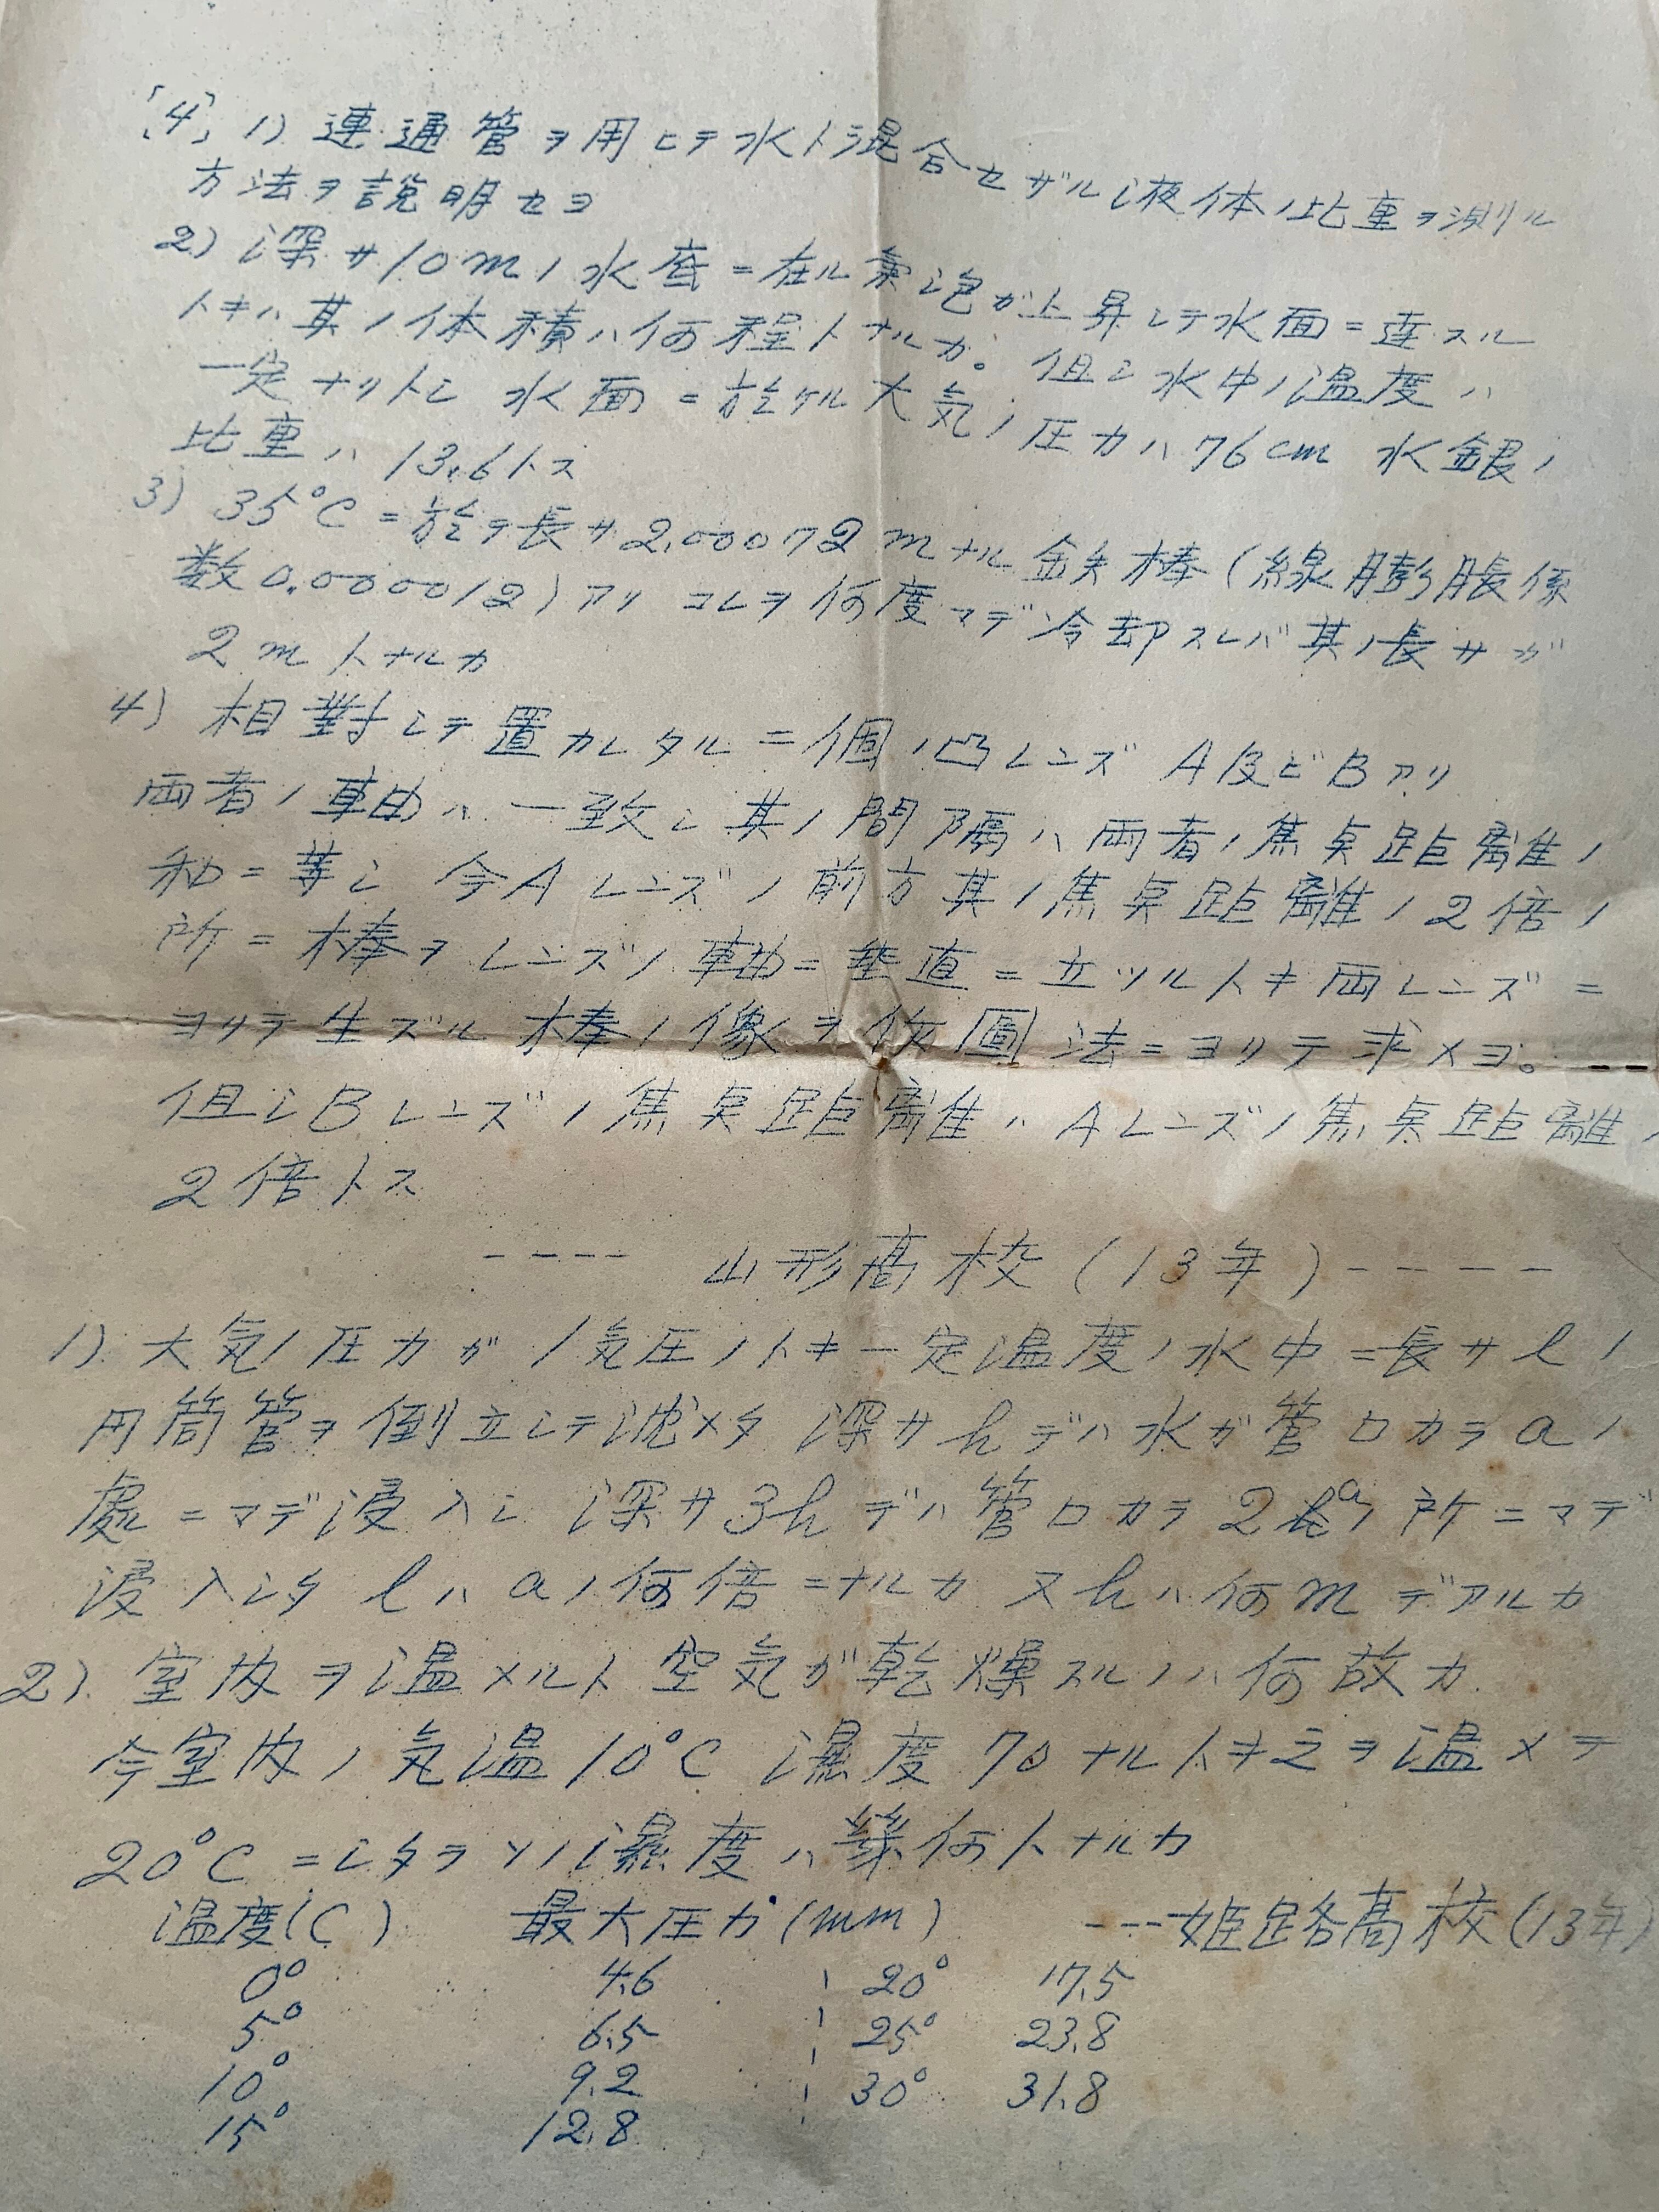 [4] 1) 連通管ヲ用ヒテ水ト混合セザル液体ノ比重ヲ測ル
方法ヲ説明セヨ
2) 深サ10mノ水底ニ在ル気泡ガ上昇シテ水面ニ達スル
トキハ其ノ体積ハ何程トナルカ。但シ水中ノ温度ハ
一定ナリトシ 水面ニ於ケル大気ノ圧力ハ76cm 水銀ノ
比重ハ13.6トス
3) 35°Cニ於テ長サ2.00072mナル鉄棒(線膨脹係
数0.000012)アリ コレヲ何度マデ冷却スレバ其ノ長サガ
2mトナルカ
4) 相對シテ置カレタル二個ノ凸レンズ A及ビBアリ
両者ノ軸ハ一致シ其ノ間隔ハ両者ノ焦点距離ノ
和ニ等シ 今Aレンズノ前方其ノ焦点距離ノ2倍ノ
所ニ棒ヲレンズノ軸ニ垂直ニ立ツルトキ両レンズニ
ヨリテ生ズル棒ノ像ヲ作圖法ニヨリテ求メヨ。
但シBレンズノ焦点距離ハAレンズノ焦点距離ノ
2倍トス
---- 山形高校(13年)----
1). 大気ノ圧力ガ1気圧ノトキ一定温度ノ水中ニ長サlノ
円筒管ヲ倒立シテ沈メタ 深サhデハ水ガ管口カラaノ
處ニマデ浸入シ 深サ3hデハ管口カラ2aノ所ニマデ
浸入シタ lハaノ何倍ニナルカ 又hハ何mデアルカ
2). 室内ヲ温メルト空気ガ乾燥スルノハ何故カ.
今室内ノ気温10°C 湿度70ナルトキ之ヲ温メテ
20°Cニシタラソノ湿度ハ幾何トナルカ
温度(C) 最大圧力(mm) ---姫路高校(13年)
0° 4.6 20° 17.5
5° 6.5 25° 23.8
10° 9.2 30° 31.8
15° 12.8